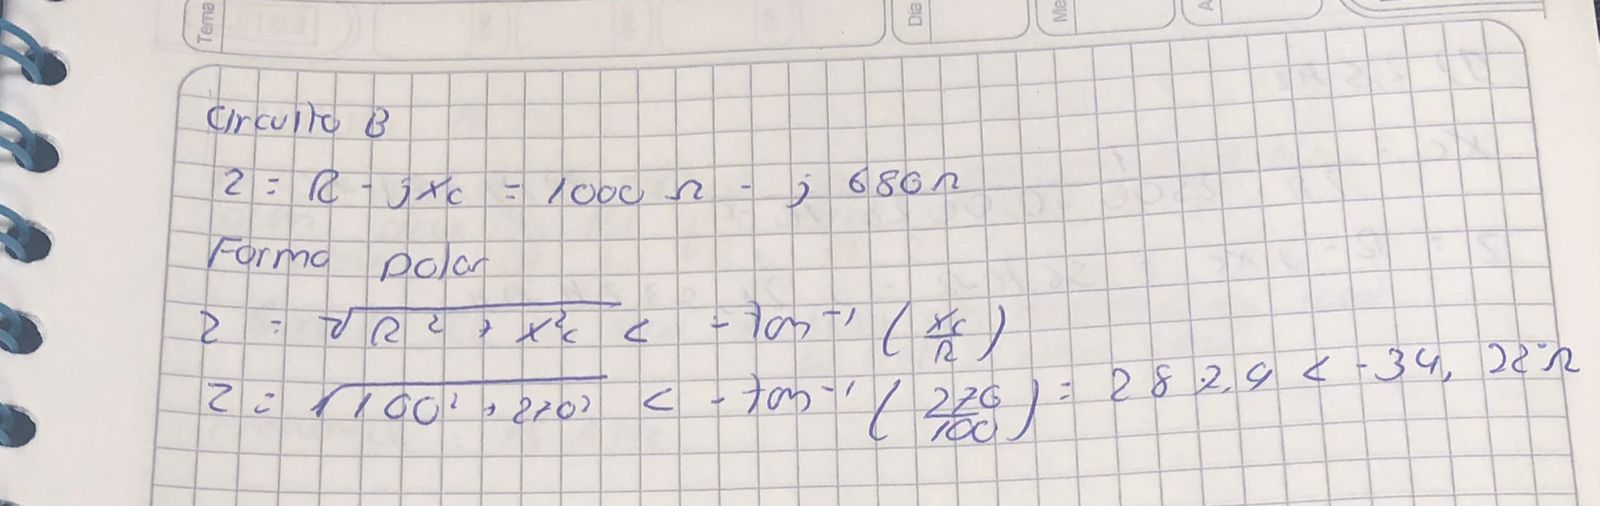 Tema
Dia
Me
A
Circuito B
Z = R - jXc = 1000 Ω - j 680 Ω
Forma Polar
Z = √R² + X²c < - tan⁻¹ (Xc/R)
Z = √100² + 270² < - tan⁻¹ (270/100) = 282,9 < -34,22° Ω